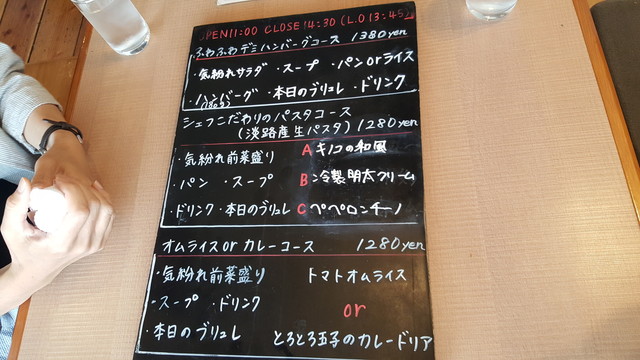 OPEN 11:00 CLOSE 14:30 (L.O 13:45)
ふわふわデミハンバーグコース 1380yen
・気紛れサラダ ・スープ ・パンorライス
・ハンバーグ ・本日のブリュレ ・ドリンク
(180g)
シェフこだわりのパスタコース
(淡路産生パスタ) 1280yen
・気紛れ前菜盛り A キノコの和風
・パン ・スープ B 冷製明太クリーム
・ドリンク ・本日のブリュレ C ペペロンチーノ
オムライスorカレーコース 1280yen
・気紛れ前菜盛り トマトオムライス
・スープ ・ドリンク or
・本日のブリュレ とろとろ玉子のカレードリア